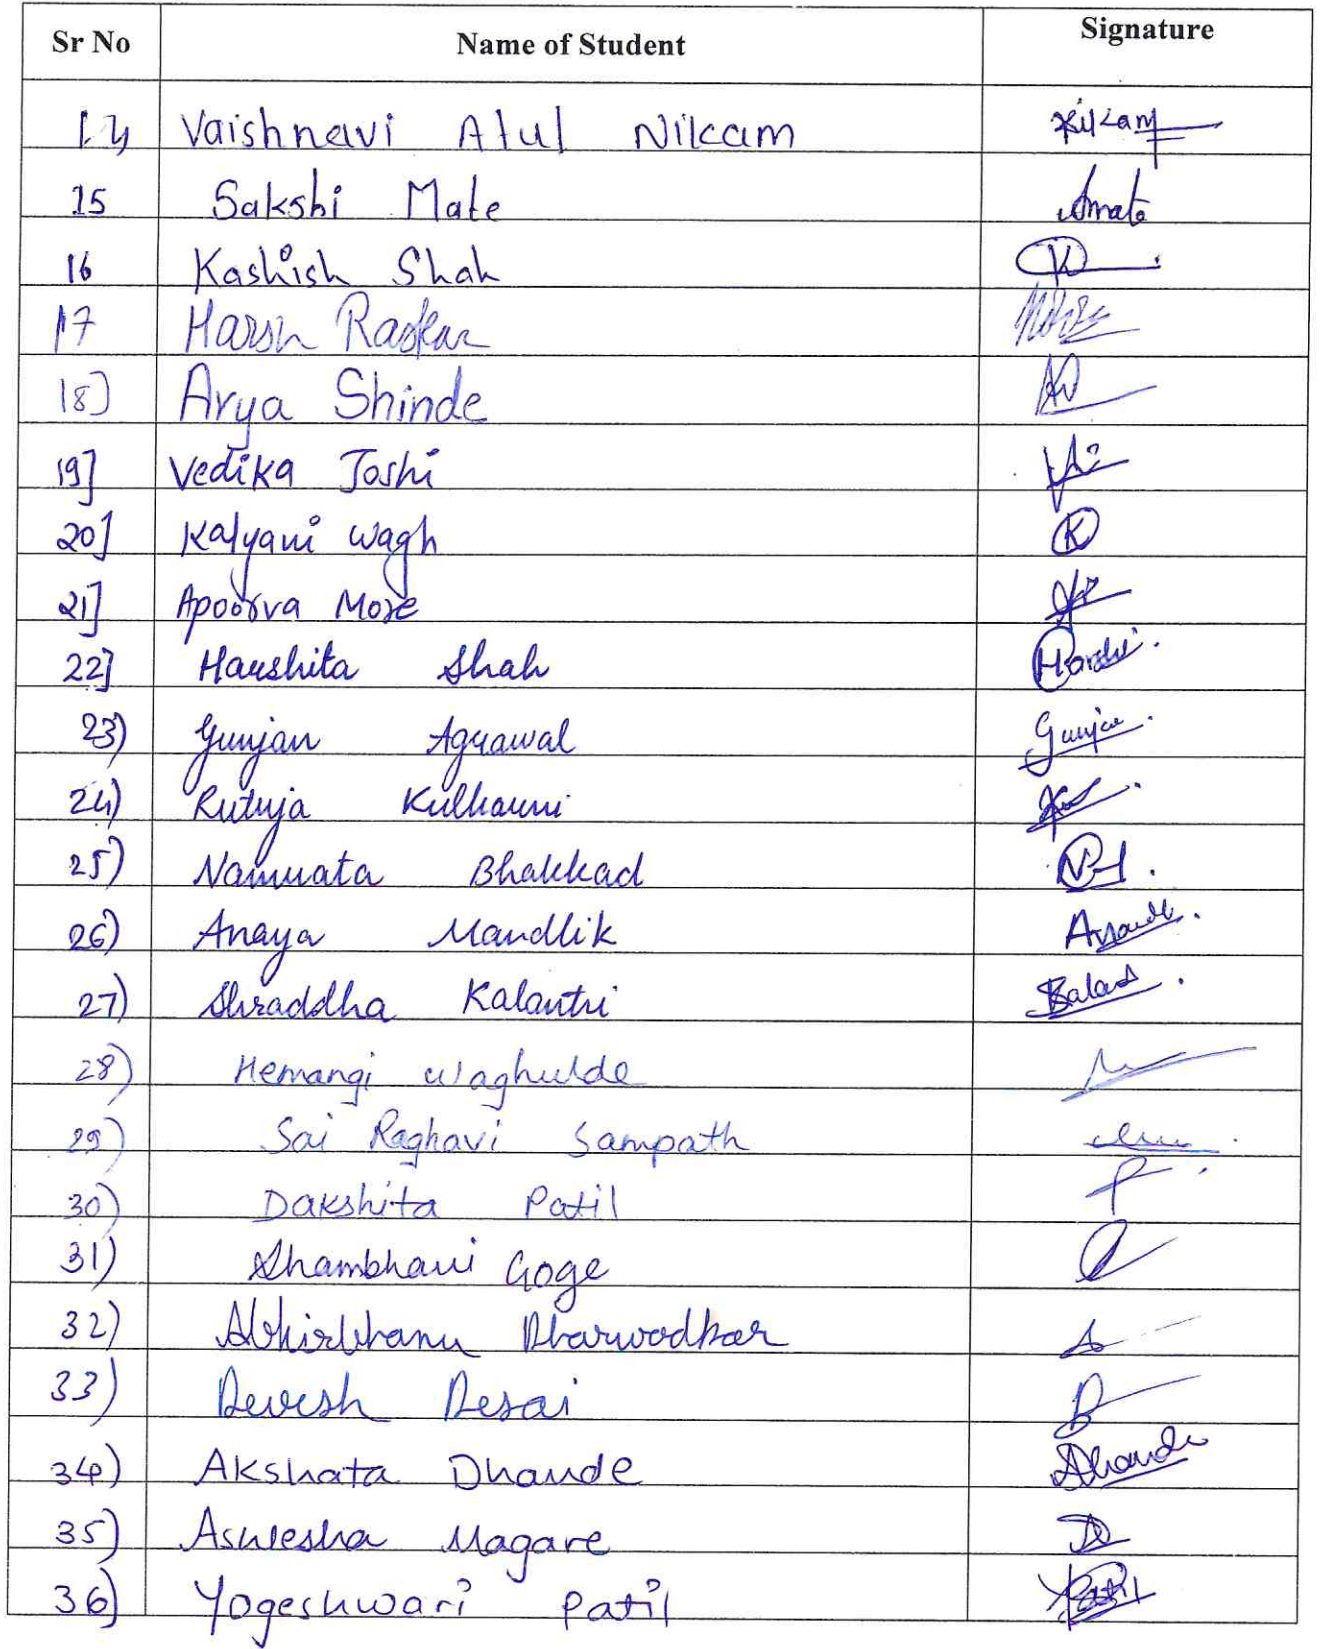 Sr No Name of Student Signature
14 Vaishnavi Atul Nikam Nikam
15 Sakshi Mate Smate
16 Kashish Shah K
17 Harsh Raskar
18) Arya Shinde
19] Vedika Joshi
20] Kalyani Wagh K
21] Apoorva More
22] Harshita Shah Harshi
23) Gunjan Agrawal Gunjan
24) Rutuja Kulkarni
25) Namrata Bhakkad
26) Anaya Mandlik
27) Shraddha Kalantri
28) Hemangi Waghulde
29) Sai Raghavi Sampath
30) Dakshita Patil
31) Shambhavi Goge
32) Abhirbhanu Dharwadkar
33) Devesh Desai
34) Akshata Dhande Dhande
35) Ashlesha Magare
36) Yogeshwari Patil YPatil